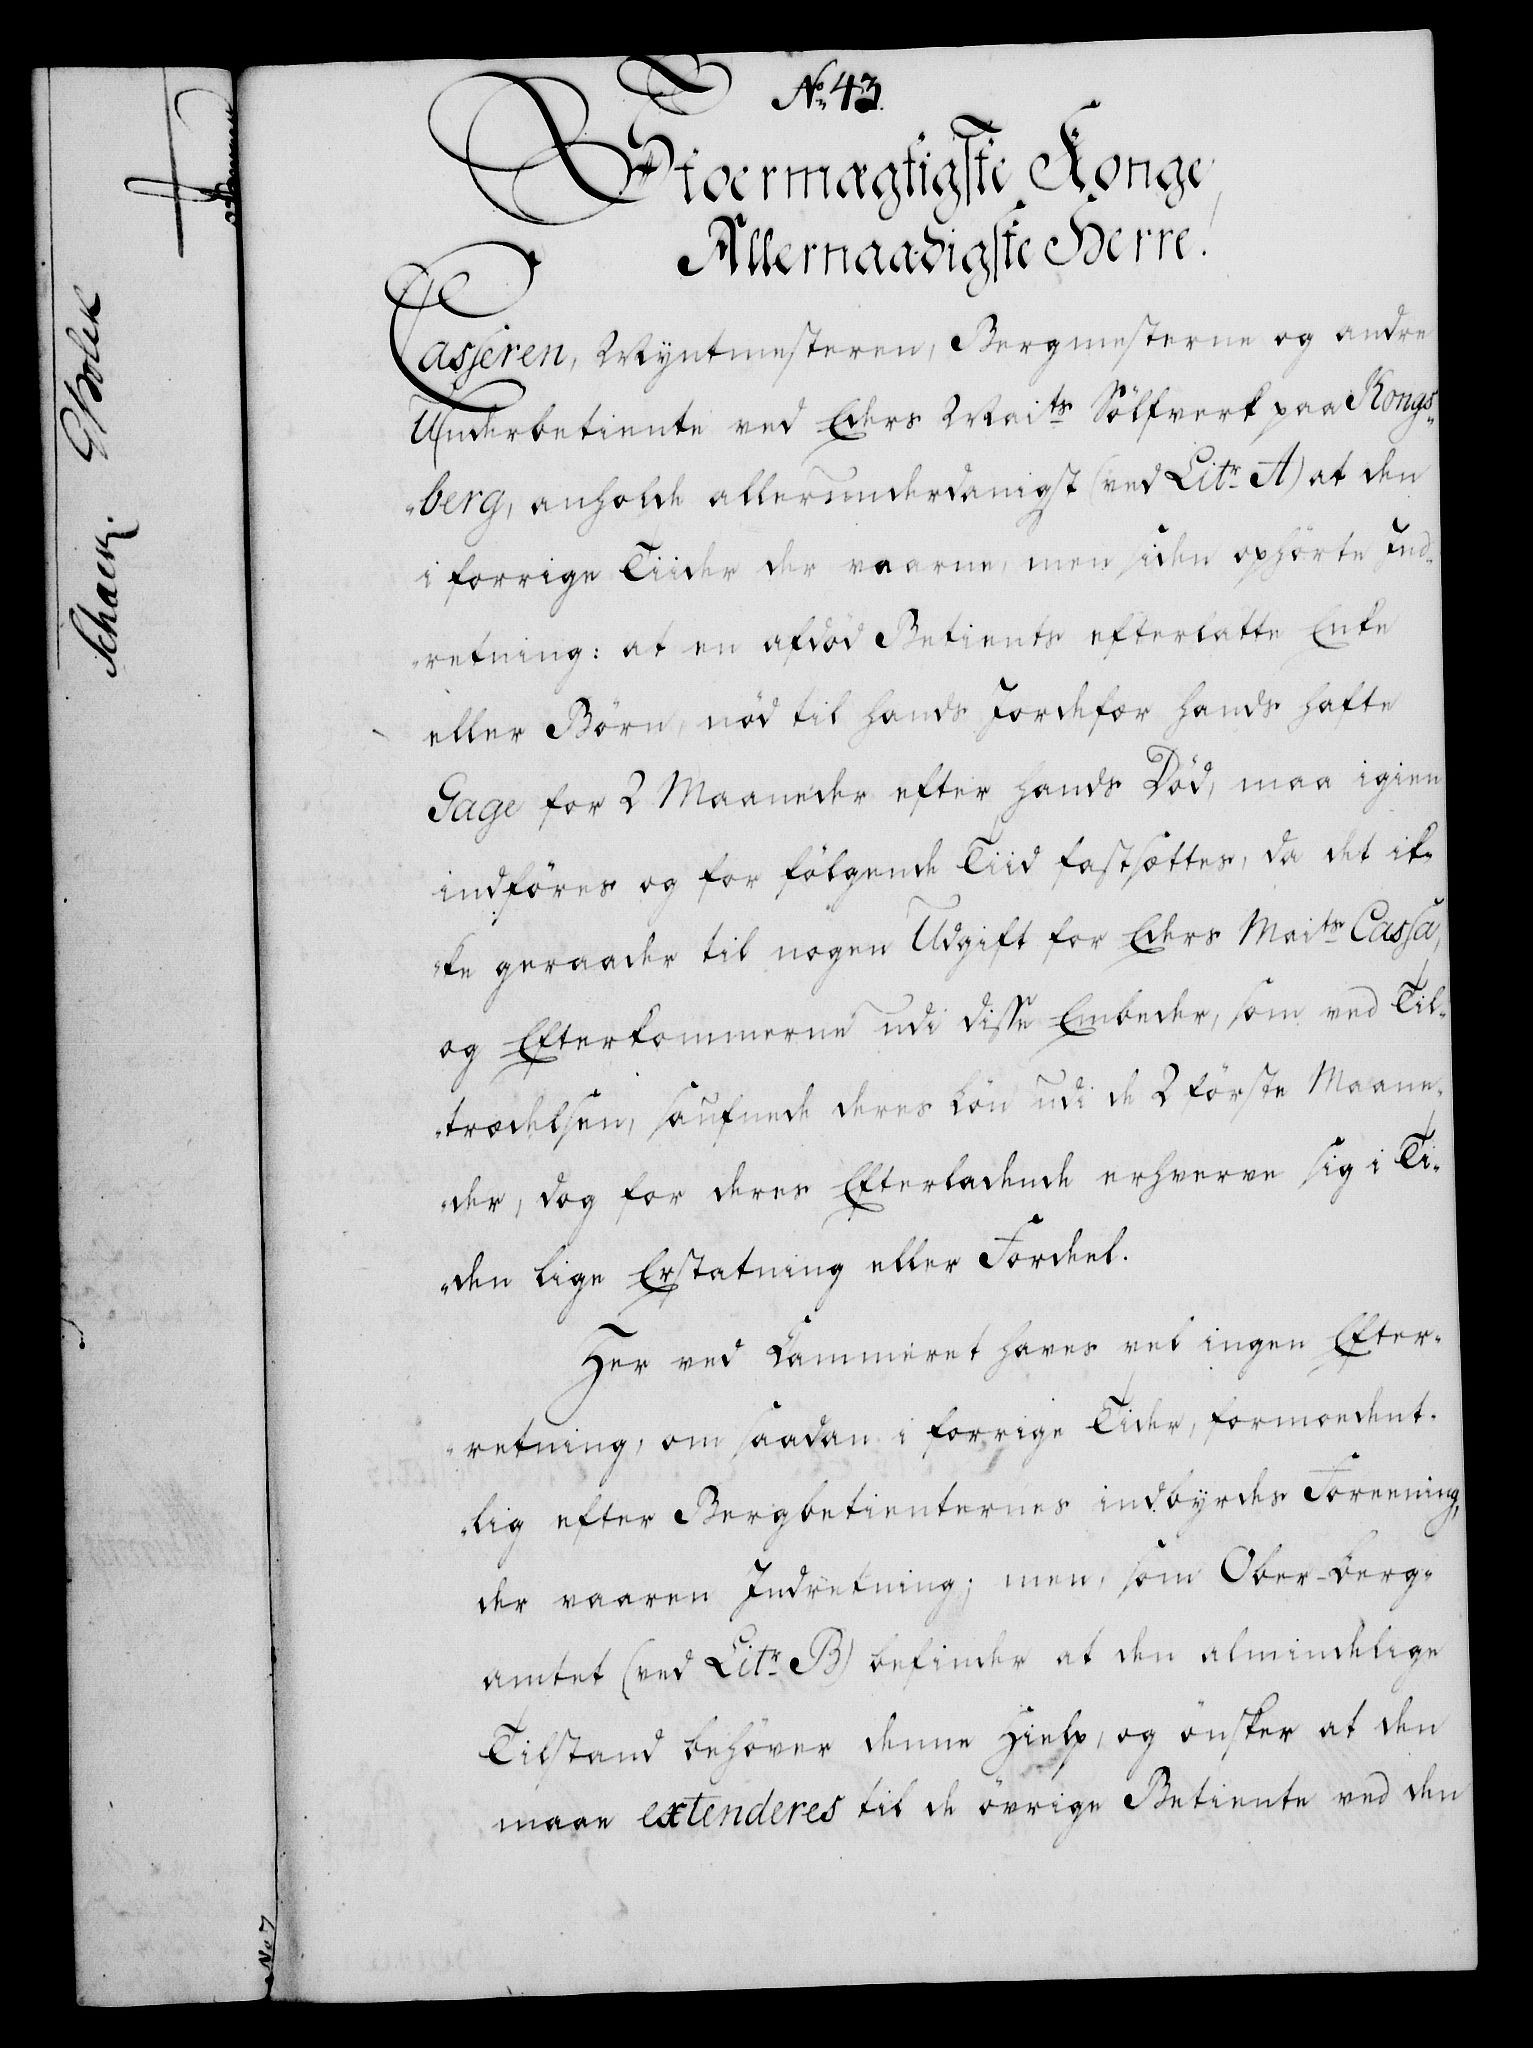 No 43.
Stoermægtigste Konge,
Allernaadigste Herre!
Casseren, Myntmesteren, Bergmesterne og andre
Underbetiente ved Eders Maits Sölfverk paa Kongs-
berg, anholde allerunderdanigst (ved Litr A) at den
i forrige Tiider der vaarne, men siden ophörte Ind-
retning: at en afdöd Betients efterlatte Enke
eller Börn, nöd til hands Jordefær hands hafte
Gage for 2 Maaneder efter hands Död, maa igien
indföres og for fölgende Tiid fastsættes, da det ik-
ke geraader til nogen Udgift for Eders Maits Cassa,
og Efterkommerne udi disse Embeder, som ved Til-
trædelsen, saufnede deres Lön udi de 2 förste Maane-
der, dog for deres Efterladende erhverve sig i Ti-
den lige Erstatning eller Fordeel.
Her ved Cammeret haves vel ingen Efter-
retning, om saadan i forrige Tider, formoedent-
lig efter Bergbetienternes indbyrdes Foreening,
der vaaren Indretning; men, som Ober-Berg-
amtet (ved Litr B) befinder at den almindelige
Tilstand behöver denne Hielp, og önsker at den
maae extenderes til de övrige Betiente ved den
Schaek
No 7